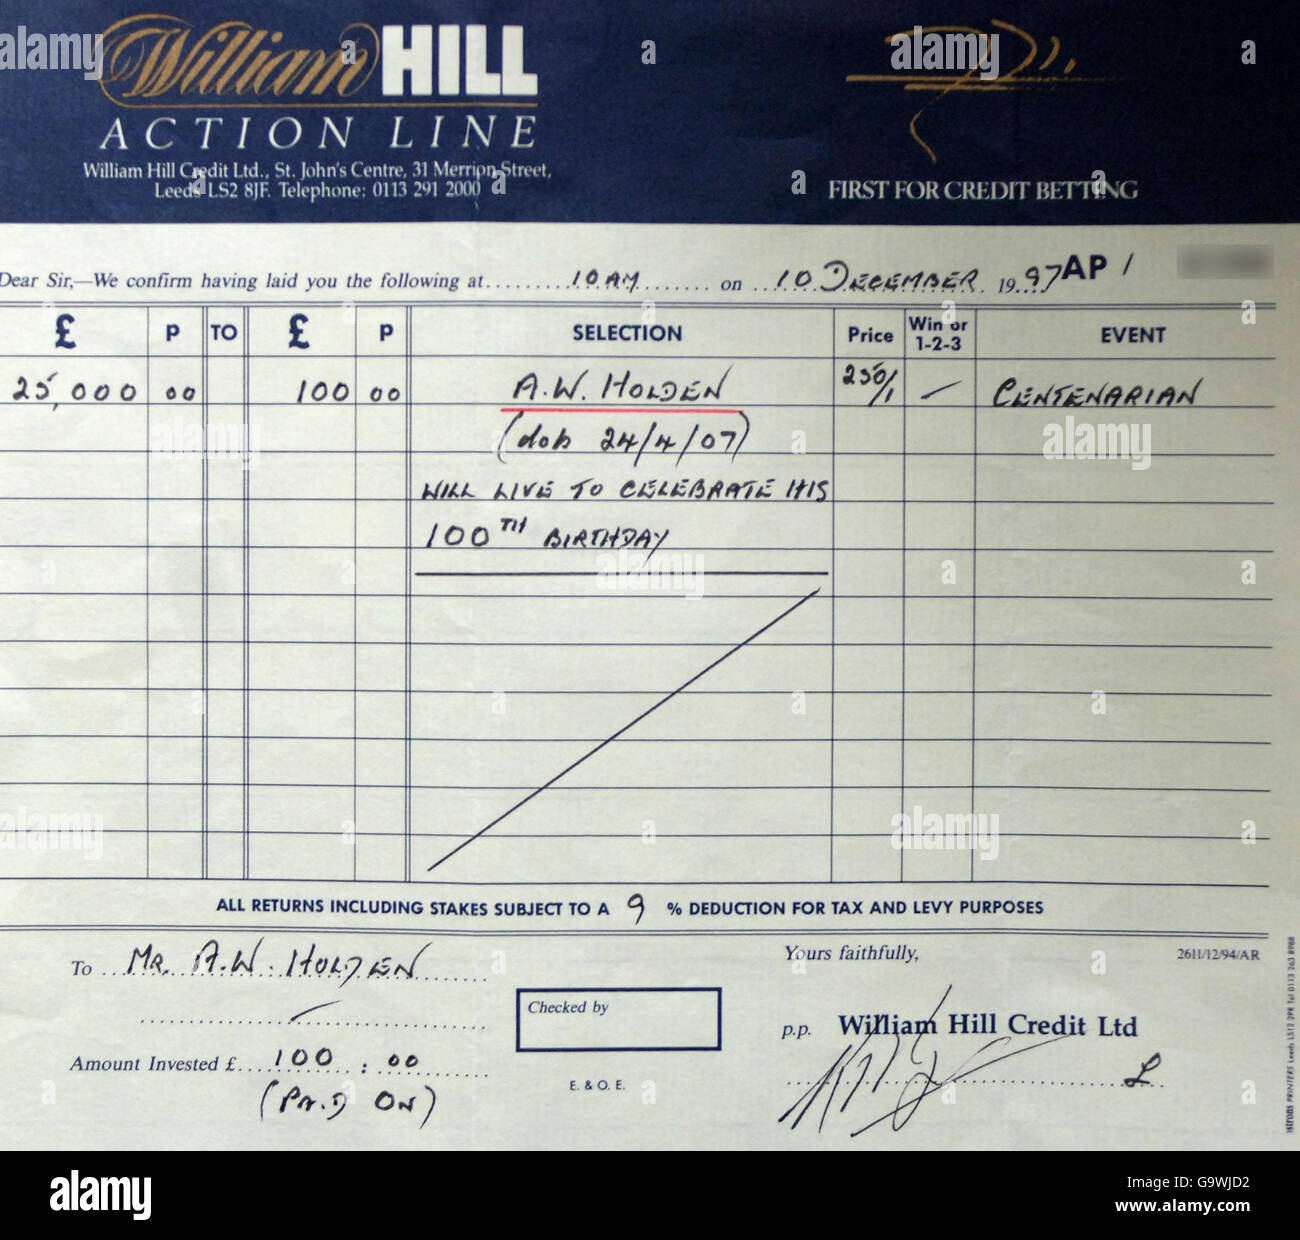 William HILL
ACTION LINE
William Hill Credit Ltd., St. John's Centre, 31 Merrion Street,
Leeds LS2 8JF. Telephone: 0113 291 2000
FIRST FOR CREDIT BETTING
Dear Sir,—We confirm having laid you the following at 10AM on 10 DECEMBER 1997 AP 1
£ P TO £ P SELECTION Price Win or 1-2-3 EVENT
25,000 00 100 00 A.W. HOLDEN 250/1 — CENTENARIAN
(dob 24/4/07)
WILL LIVE TO CELEBRATE HIS
100TH BIRTHDAY
ALL RETURNS INCLUDING STAKES SUBJECT TO A 9 % DEDUCTION FOR TAX AND LEVY PURPOSES
To MR. A.W. HOLDEN
Yours faithfully,
2611/12/94/AR
Checked by
p.p. William Hill Credit Ltd
Amount Invested £ 100 : 00
(PAID ON)
E. & O. E.
PRINTERS Leeds LS12 2PR Tel 0113 263 8988
alamy
a
alamy
G9WJD2
www.alamy.com